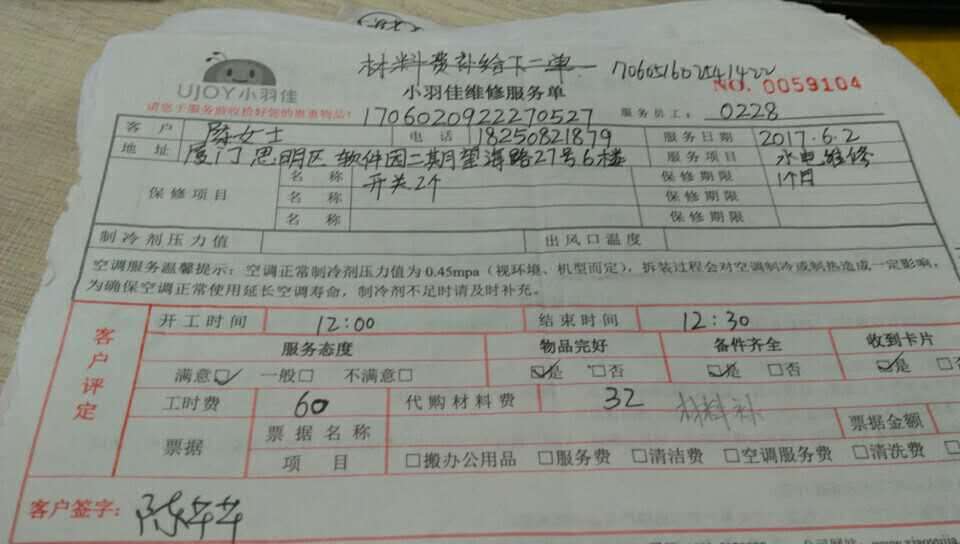 材料费补给下一单
NO. 0059104
UJOY小羽佳
小羽佳维修服务单
请您于服务前收检好您的贵重物品! 1706020922270527 服务员工: 0228
客户 陈女士 电话 18250821879 服务日期 2017.6.2
地址 厦门思明区软件园二期望海路27号6楼 服务项目 水电维修
保修项目 名称 开关2个 保修期限 1个月
名称 保修期限
名称 保修期限
制冷剂压力值 出风口温度
空调服务温馨提示:空调正常制冷剂压力值为0.45mpa(视环境、机型而定),拆装过程会对空调制冷或制热造成一定影响,
为确保空调正常使用延长空调寿命,制冷剂不足时请及时补充。
客户评定
开工时间 12:00 结束时间 12:30
服务态度 物品完好 备件齐全 收到卡片
满意☑ 一般□ 不满意□ ☑是 □否 ☑是 □否 ☑是 □否
工时费 60 代购材料费 32 材料补
票据 票据名称 票据金额
项目 □搬办公用品 □服务费 □清洁费 □空调服务费 □清洗费
客户签字: